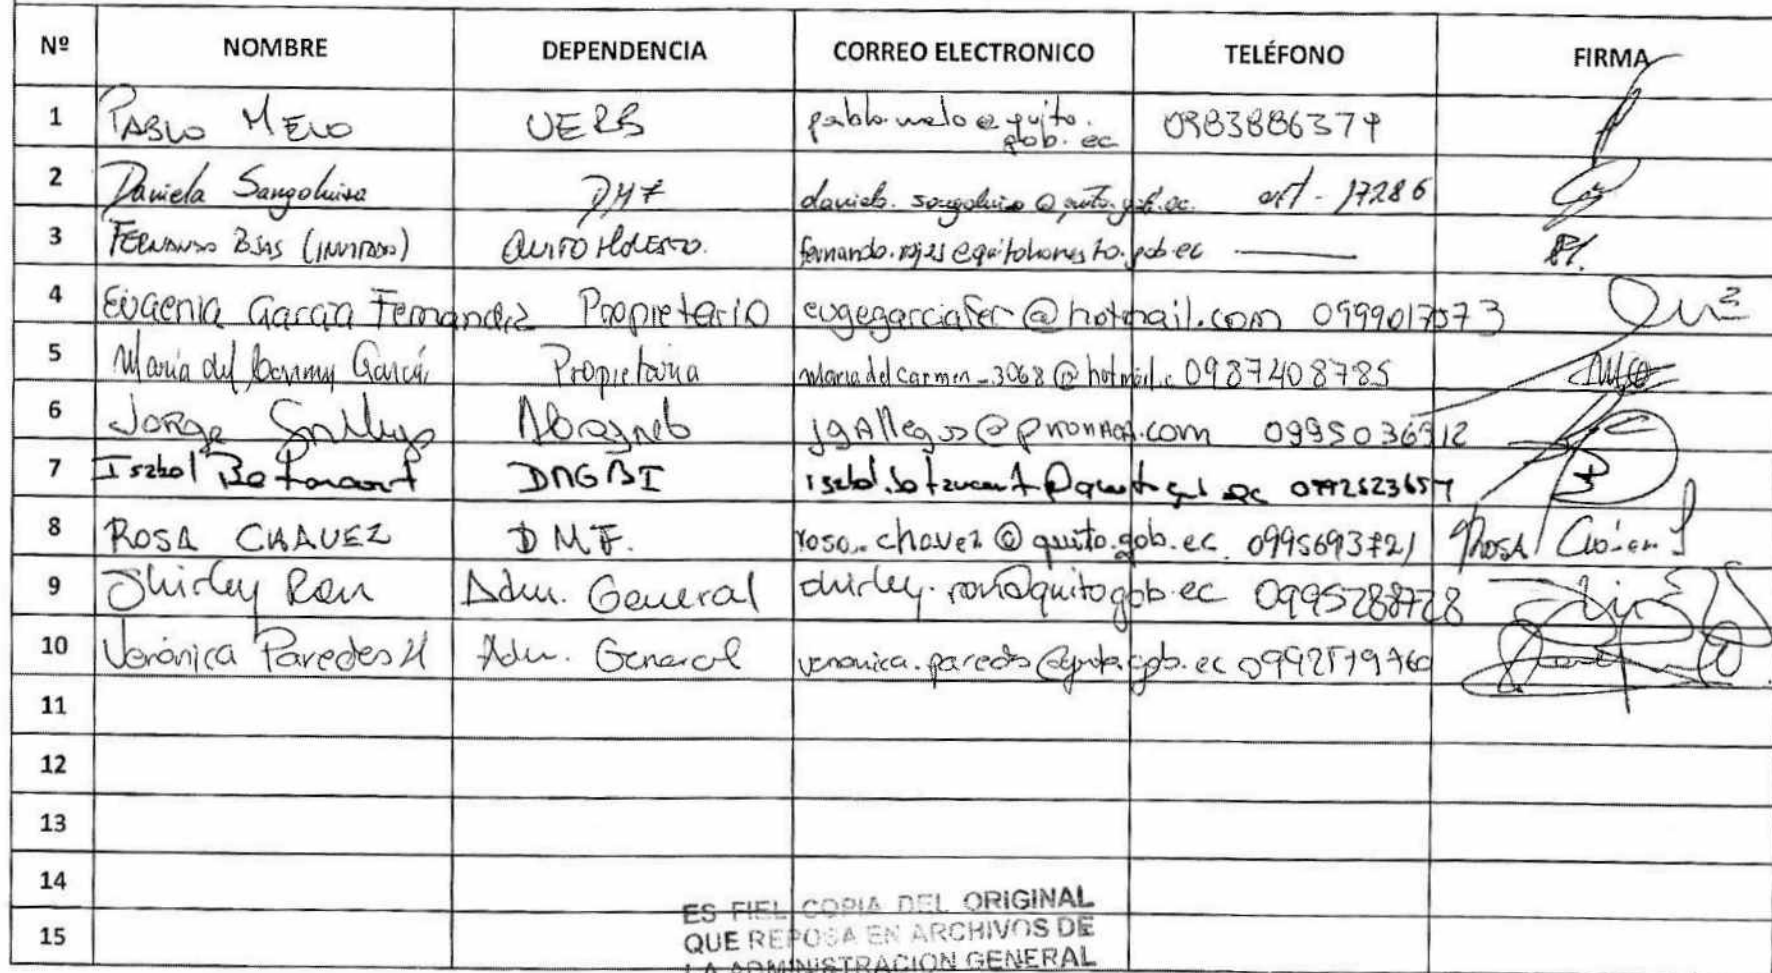 Nº NOMBRE DEPENDENCIA CORREO ELECTRONICO TELÉFONO FIRMA
1 PABLO MELO UERB pablo.melo@quito.gob.ec 0983886379
2 Daniela Sangoluisa DMF daniela.sangoluisa@quito.gob.ec ext - 17286
3 FERNANDO ROJAS (INVITADO) QUITO HONESTO. fernando.rojas@quitohonesto.gob.ec
4 Eugenia García Fernandez Propietario eugegarciafer@hotmail.com 0999017573
5 María del Carmen García Propietaria mariadelcarmen_3068@hotmail.c 0987408785
6 Jorge Abogado 0995036912
7 Isabel DMGBI
8 ROSA CHAVEZ D M F. rosa.chavez@quito.gob.ec 0995693721 ROSA
9 Shirley Ron Adm. General shirley.ron@quito.gob.ec 0995288728
10 Verónica Paredes H Adm. General veronica.paredes@quito.gob.ec 0992579760
11
12
13
14
15
ES FIEL COPIA DEL ORIGINAL
QUE REPOSA EN ARCHIVOS DE
LA ADMINISTRACION GENERAL